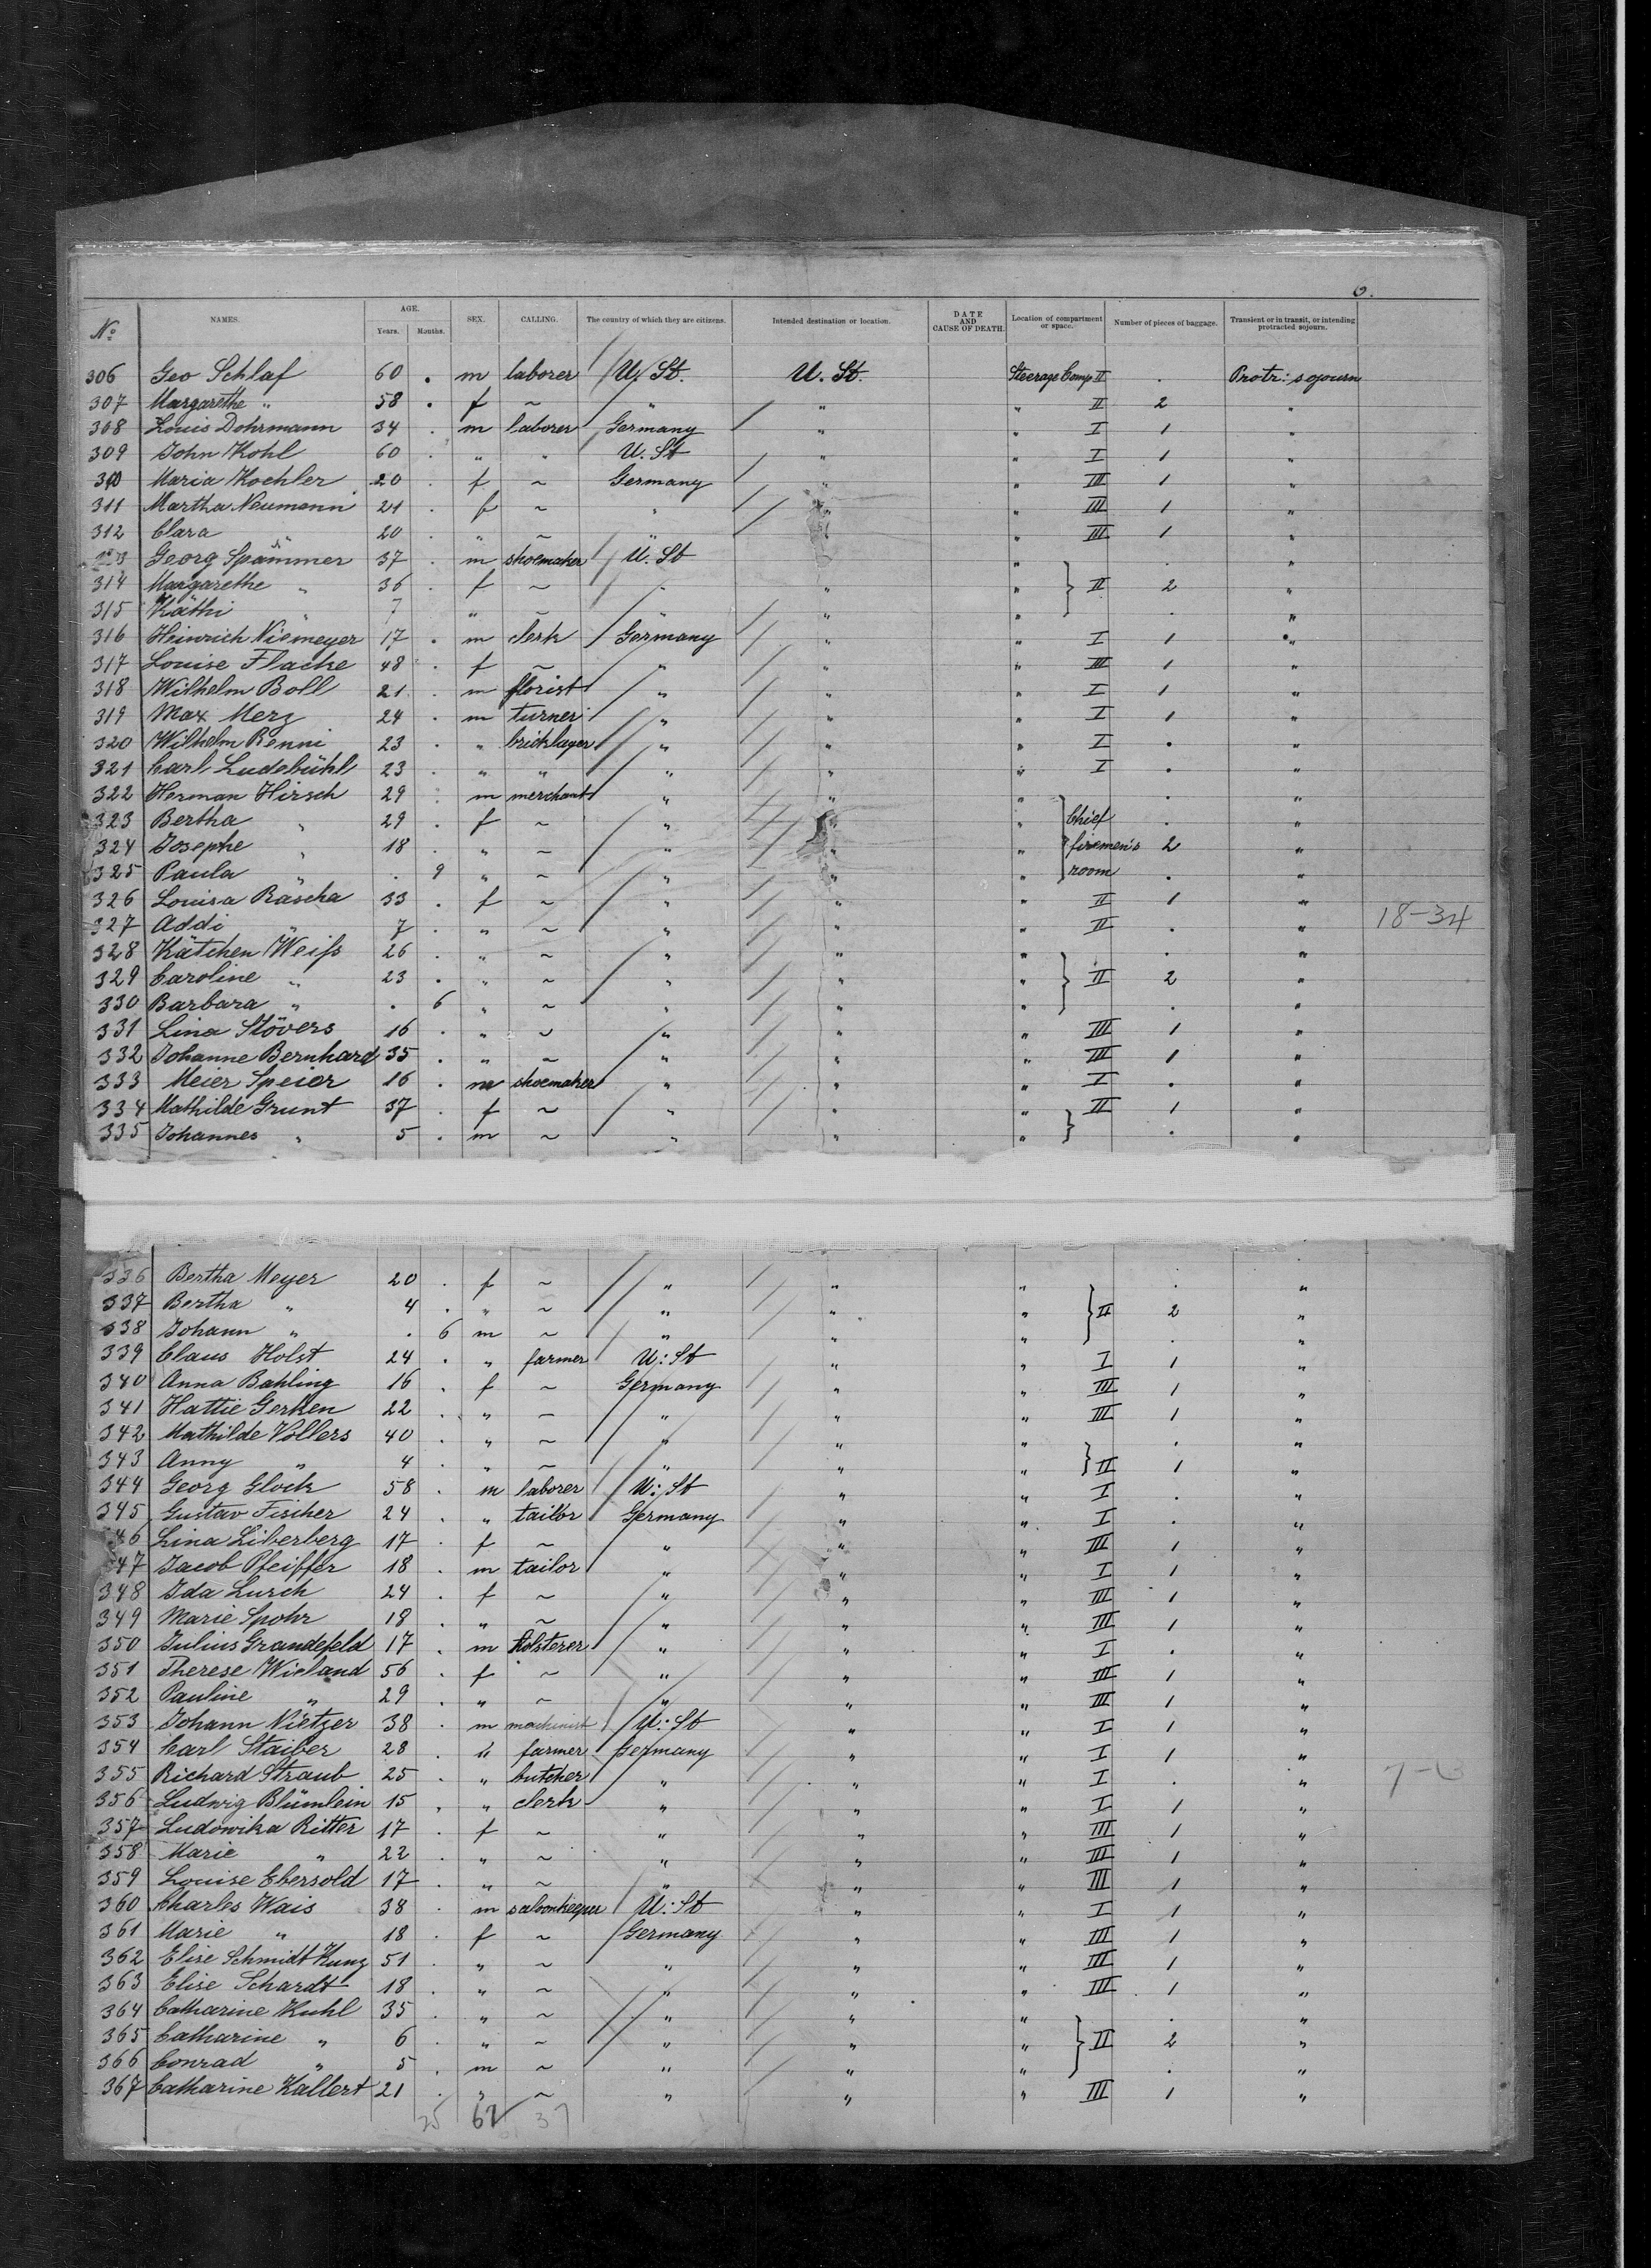 6.
No NAMES. AGE. Years. Months. SEX. CALLING. The country of which they are citizens. Intended destination or location. DATE AND CAUSE OF DEATH. Location of compartment or space. Number of pieces of baggage. Transient or in transit, or intending protracted sojourn.
306 Geo Schlaf 60 . m laborer U. St. U. St. Steerage Comp II . Protr: sojourn
307 Margarethe " 58 . f ~ " " " II 2 "
308 Louis Dohrmann 34 . m laborer Germany " " I 1 "
309 John Kohl 60 . " " U. St " " I 1 "
310 Maria Koehler 20 . f ~ Germany " " III 1 "
311 Martha Neumann 21 . f ~ " " " III 1 "
312 Clara " 20 . " ~ " " " III 1 "
Georg Spämmer 37 . m shoemaker U. St " . "
314 Margarethe " 36 . f ~ " " " II 2 "
315 Käthi " 7 " ~ " " " . "
316 Heinrich Niemeyer 17 . m clerk Germany " " I 1 "
317 Louise Flacke 48 . f ~ " " " III 1 "
318 Wilhelm Boll 21 . m florist " " " I 1 "
319 Max Merz 24 . m turner " " " I 1 "
320 Wilhelm Renni 23 . " bricklayer " " " I . "
321 Carl Ludebühl 23 . " " " " " I . "
322 Herman Hirsch 29 . m merchant " " " . "
323 Bertha " 29 . f ~ " " " Chief . "
324 Josephe " 18 . " ~ " " " firemen's 2 "
325 Paula " . 9 " ~ " " " room . "
326 Louisa Räscha 33 . f ~ " " " II 1 "
327 Addi " 7 . " ~ " " " II . " 18-34
328 Kätchen Weiß 26 . " ~ " " " . "
329 Caroline " 23 . " ~ " " " II 2 "
330 Barbara " . 6 " ~ " " " . "
331 Lina Stövers 16 . " ~ " " " III 1 "
332 Johanne Bernhard 35 . " ~ " " " III 1 "
333 Meier Speier 16 . m shoemaker " " " I . "
334 Mathilde Grunt 37 . f ~ " " " II 1 "
335 Johannes " 5 . m ~ " " " . "
336 Bertha Meyer 20 . f ~ " " " . "
337 Bertha " 4 . " ~ " " " II 2 "
338 Johann " . 6 m ~ " " " . "
339 Claus Holst 24 . " farmer U: St " " I 1 "
340 Anna Bahling 16 . f ~ Germany " " III 1 "
341 Hattie Gerken 22 . " ~ " " " III 1 "
342 Mathilde Vollers 40 . " ~ " " " . "
343 Anny " 4 . " ~ " " " II 1 "
344 Georg Glock 58 . m laborer U: St " " I . "
345 Gustav Fischer 24 . " tailor Germany " " I . "
346 Lina Liberberg 17 . f ~ " " " III 1 "
347 Jacob Pfeiffer 18 . m tailor " " " I 1 "
348 Ida Lursch 24 . f ~ " " " III 1 "
349 Marie Spohr 18 . " ~ " " " III 1 "
350 Julius Grandefeld 17 . m " " " I . "
351 Therese Wieland 56 . f ~ " " " III 1 "
352 Pauline " 29 . " ~ " " " III 1 "
353 Johann Nietzer 38 . m machinist U: St " " I 1 "
354 Carl Staiber 28 . " farmer Germany " " I 1 "
355 Richard Straub 25 . " butcher " " " I . "
356 Ludwig Blümlein 15 . " clerk " " " I 1 "
357 Ludowika Ritter 17 . f ~ " " " III 1 "
358 Marie " 22 . " ~ " " " III 1 "
359 Louise Ebersold 17 . " ~ " " " III 1 "
360 Charles Wais 38 . m saloonkeeper U: St " " I 1 "
361 Marie " 18 . f ~ Germany " " III 1 "
362 Elise Schmidt Kunz 51 . " ~ " " " III 1 "
363 Elise Schardt 18 . " ~ " " " III 1 "
364 Catharine Kuhl 35 . " ~ " " " . "
365 Catharine " 6 . " ~ " " " II 2 "
366 Conrad " 5 . m ~ " " " . "
367 Catharine Kallert 21 . " ~ " " " III 1 "
25 62 37